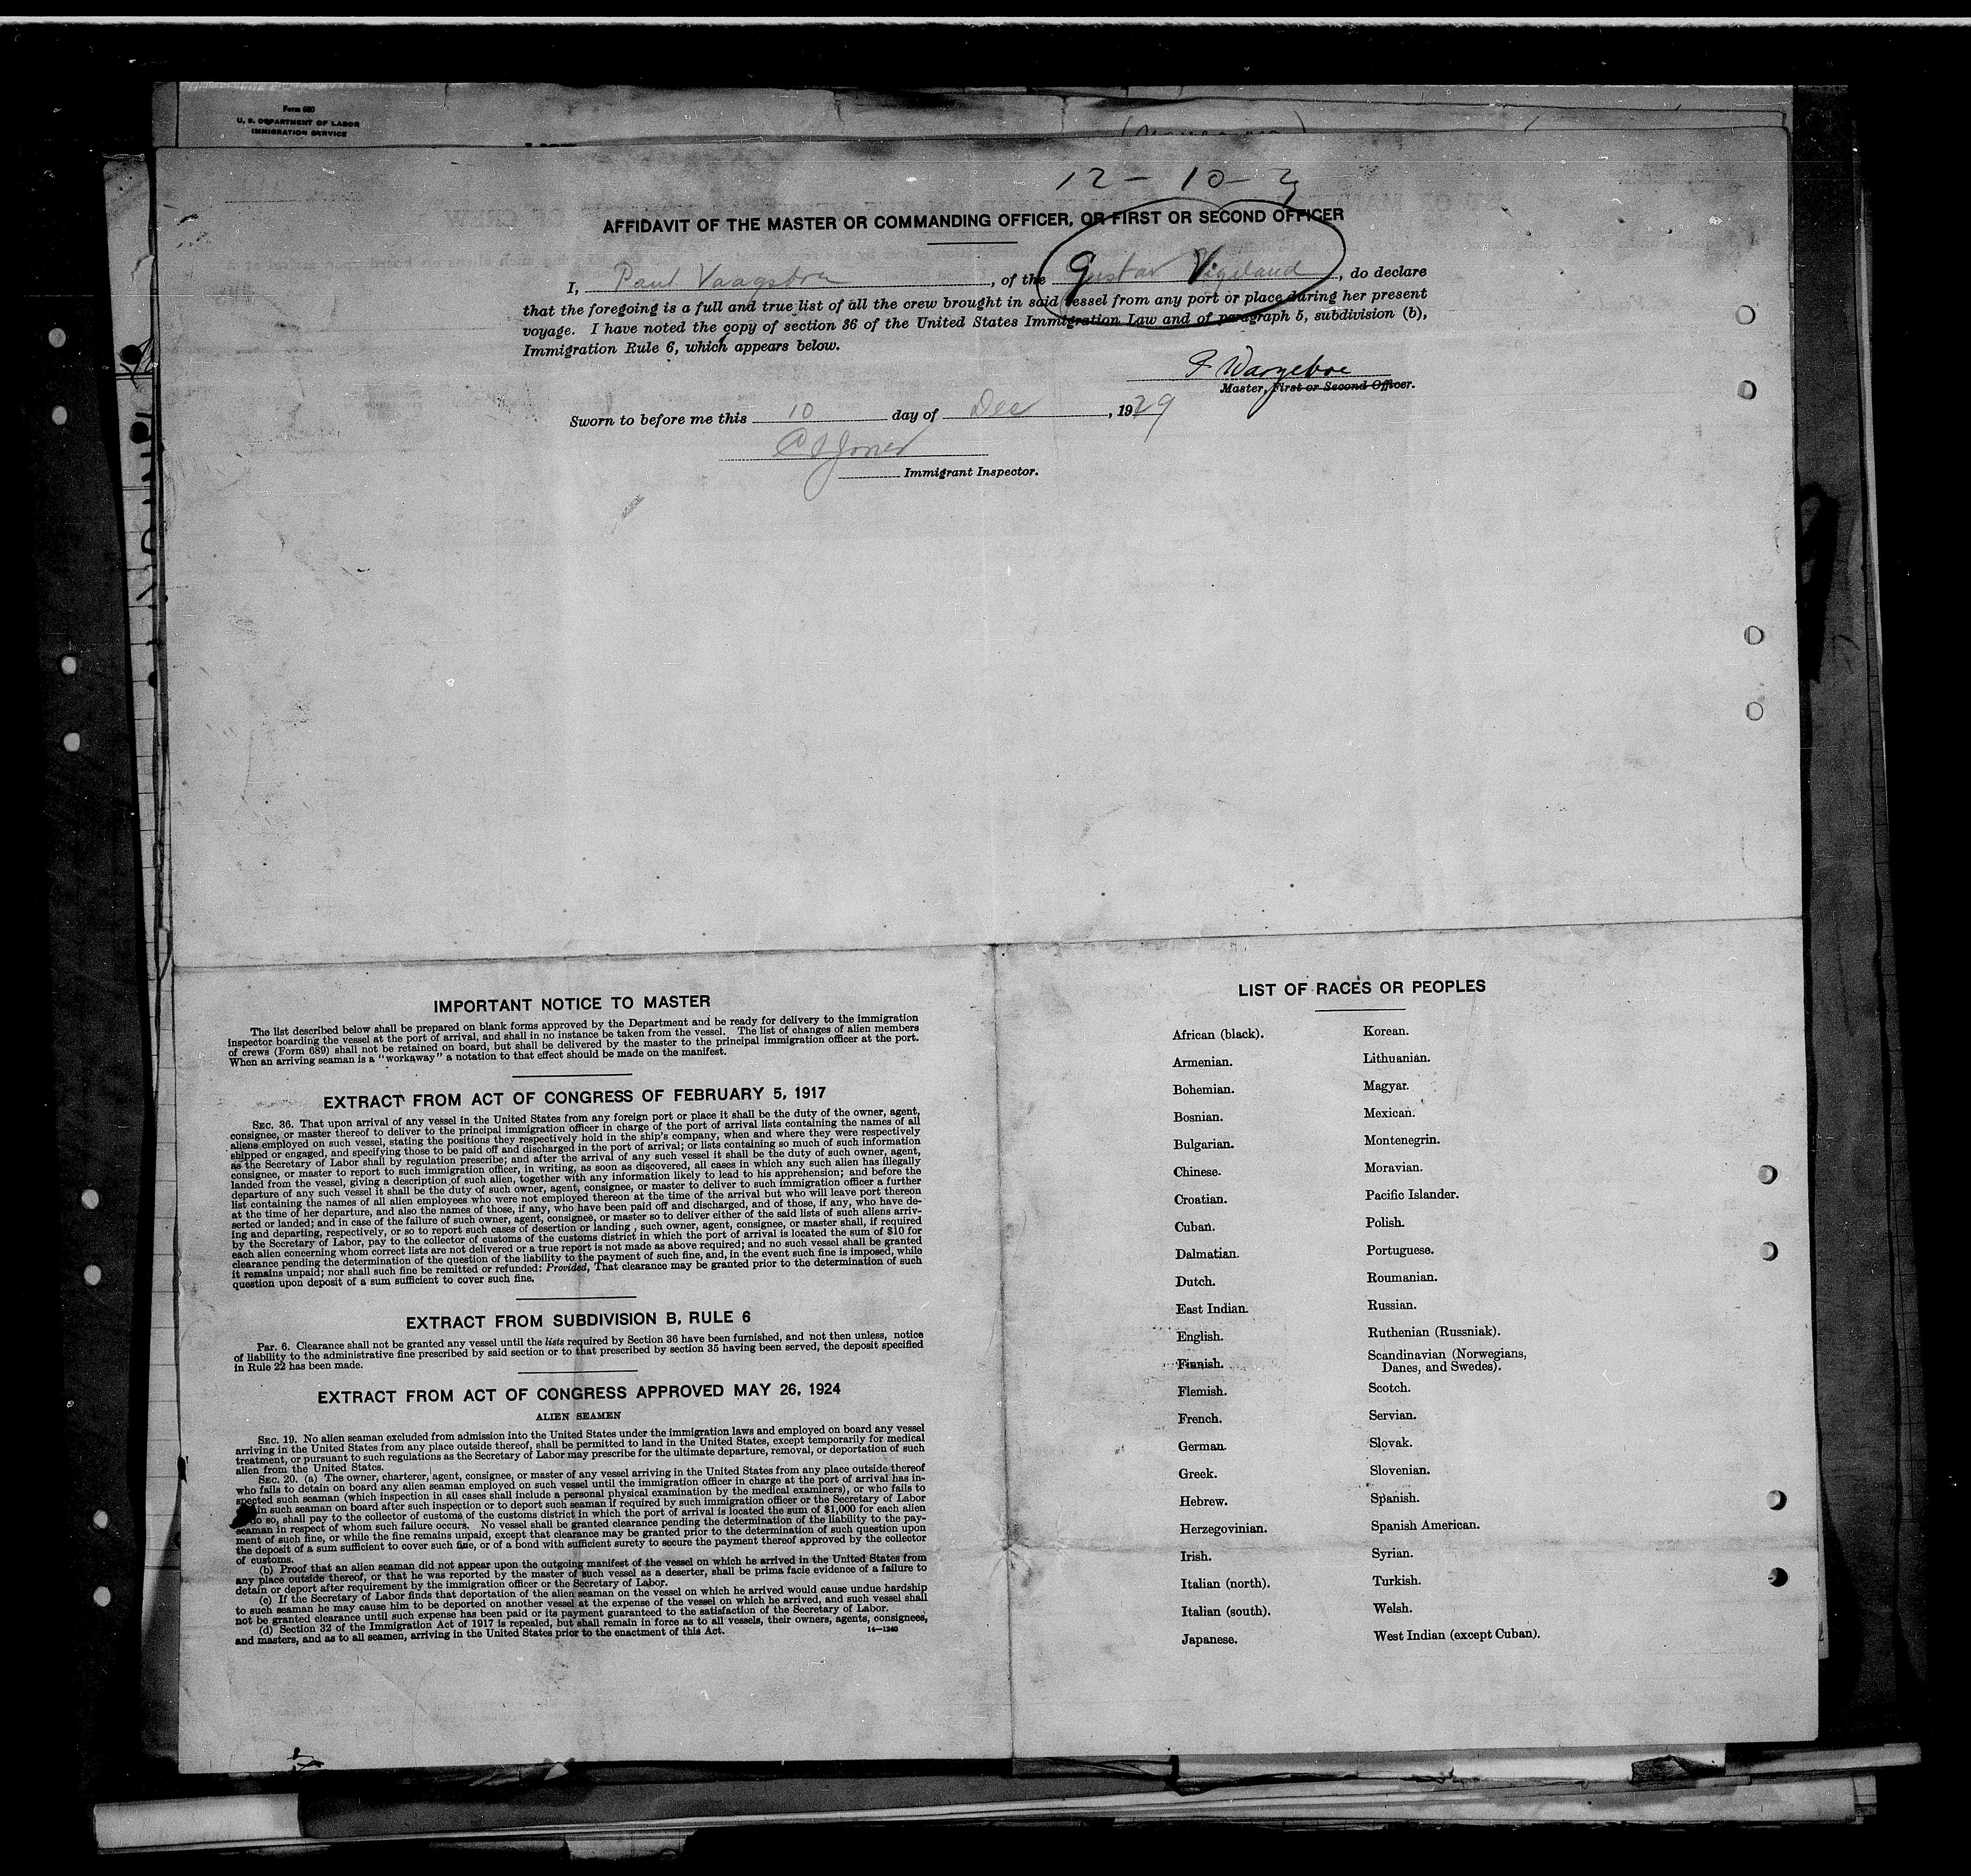 Form 680
U. S. DEPARTMENT OF LABOR
IMMIGRATION SERVICE
12 - 10 - 29
AFFIDAVIT OF THE MASTER OR COMMANDING OFFICER, OR FIRST OR SECOND OFFICER
I, Paul , of the Gustav Vigeland, do declare
that the foregoing is a full and true list of all the crew brought in said vessel from any port or place during her present
voyage. I have noted the copy of section 36 of the United States Immigration Law and of paragraph 5, subdivision (b),
Immigration Rule 6, which appears below.
Master, First or Second Officer.
Sworn to before me this 10 day of Dec, 1929
Jones
Immigrant Inspector.
IMPORTANT NOTICE TO MASTER
The list described below shall be prepared on blank forms approved by the Department and be ready for delivery to the immigration
inspector boarding the vessel at the port of arrival, and shall in no instance be taken from the vessel. The list of changes of alien members
of crews (Form 689) shall not be retained on board, but shall be delivered by the master to the principal immigration officer at the port.
When an arriving seaman is a "workaway" a notation to that effect should be made on the manifest.
EXTRACT FROM ACT OF CONGRESS OF FEBRUARY 5, 1917
SEC. 36. That upon arrival of any vessel in the United States from any foreign port or place it shall be the duty of the owner, agent,
consignee, or master thereof to deliver to the principal immigration officer in charge of the port of arrival lists containing the names of all
aliens employed on such vessel, stating the positions they respectively hold in the ship's company, when and where they were respectively
shipped or engaged, and specifying those to be paid off and discharged in the port of arrival; or lists containing so much of such information
as the Secretary of Labor shall by regulation prescribe; and after the arrival of any such vessel it shall be the duty of such owner, agent,
consignee, or master to report to such immigration officer, in writing, as soon as discovered, all cases in which any such alien has illegally
landed from the vessel, giving a description of such alien, together with any information likely to lead to his apprehension; and before the
departure of any such vessel it shall be the duty of such owner, agent, consignee, or master to deliver to such immigration officer a further
list containing the names of all alien employees who were not employed thereon at the time of the arrival but who will leave port thereon
at the time of her departure, and also the names of those, if any, who have been paid off and discharged, and of those, if any, who have de-
serted or landed; and in case of the failure of such owner, agent, consignee, or master so to deliver either of the said lists of such aliens arriv-
ing and departing, respectively, or so to report such cases of desertion or landing , such owner, agent, consignee, or master shall, if required
by the Secretary of Labor, pay to the collector of customs of the customs district in which the port of arrival is located the sum of $10 for
each alien concerning whom correct lists are not delivered or a true report is not made as above required; and no such vessel shall be granted
clearance pending the determination of the question of the liability to the payment of such fine, and, in the event such fine is imposed, while
it remains unpaid; nor shall such fine be remitted or refunded: Provided, That clearance may be granted prior to the determination of such
question upon deposit of a sum sufficient to cover such fine.
EXTRACT FROM SUBDIVISION B, RULE 6
Par. 6. Clearance shall not be granted any vessel until the lists required by Section 36 have been furnished, and not then unless, notice
of liability to the administrative fine prescribed by said section or to that prescribed by section 35 having been served, the deposit specified
in Rule 22 has been made.
EXTRACT FROM ACT OF CONGRESS APPROVED MAY 26, 1924
ALIEN SEAMEN
SEC. 19. No alien seaman excluded from admission into the United States under the immigration laws and employed on board any vessel
arriving in the United States from any place outside thereof, shall be permitted to land in the United States, except temporarily for medical
treatment, or pursuant to such regulations as the Secretary of Labor may prescribe for the ultimate departure, removal, or deportation of such
alien from the United States.
SEC. 20. (a) The owner, charterer, agent, consignee, or master of any vessel arriving in the United States from any place outside thereof
who fails to detain on board any alien seaman employed on such vessel until the immigration officer in charge at the port of arrival has in-
spected such seaman (which inspection in all cases shall include a personal physical examination by the medical examiners), or who fails to
in such seaman on board after such inspection or to deport such seaman if required by such immigration officer or the Secretary of Labor
do so, shall pay to the collector of customs of the customs district in which the port of arrival is located the sum of $1,000 for each alien
seaman in respect of whom such failure occurs. No vessel shall be granted clearance pending the determination of the liability to the pay-
ment of such fine, or while the fine remains unpaid, except that clearance may be granted prior to the determination of such question upon
the deposit of a sum sufficient to cover such fine, or of a bond with sufficient surety to secure the payment thereof approved by the collector
of customs.
(b) Proof that an alien seaman did not appear upon the outgoing manifest of the vessel on which he arrived in the United States from
any place outside thereof, or that he was reported by the master of such vessel as a deserter, shall be prima facie evidence of a failure to
detain or deport after requirement by the immigration officer or the Secretary of Labor.
(c) If the Secretary of Labor finds that deportation of the alien seaman on the vessel on which he arrived would cause undue hardship
to such seaman he may cause him to be deported on another vessel at the expense of the vessel on which he arrived, and such vessel shall
not be granted clearance until such expense has been paid or its payment guaranteed to the satisfaction of the Secretary of Labor.
(d) Section 32 of the Immigration Act of 1917 is repealed, but shall remain in force as to all vessels, their owners, agents, consignees,
and masters, and as to all seamen, arriving in the United States prior to the enactment of this Act.
14—1240
LIST OF RACES OR PEOPLES
African (black).
Armenian.
Bohemian.
Bosnian.
Bulgarian.
Chinese.
Croatian.
Cuban.
Dalmatian.
Dutch.
East Indian.
English.
Finnish.
Flemish.
French.
German.
Greek.
Hebrew.
Herzegovinian.
Irish.
Italian (north).
Italian (south).
Japanese.
Korean.
Lithuanian.
Magyar.
Mexican.
Montenegrin.
Moravian.
Pacific Islander.
Polish.
Portuguese.
Roumanian.
Russian.
Ruthenian (Russniak).
Scandinavian (Norwegians,
Danes, and Swedes).
Scotch.
Servian.
Slovak.
Slovenian.
Spanish.
Spanish American.
Syrian.
Turkish.
Welsh.
West Indian (except Cuban).